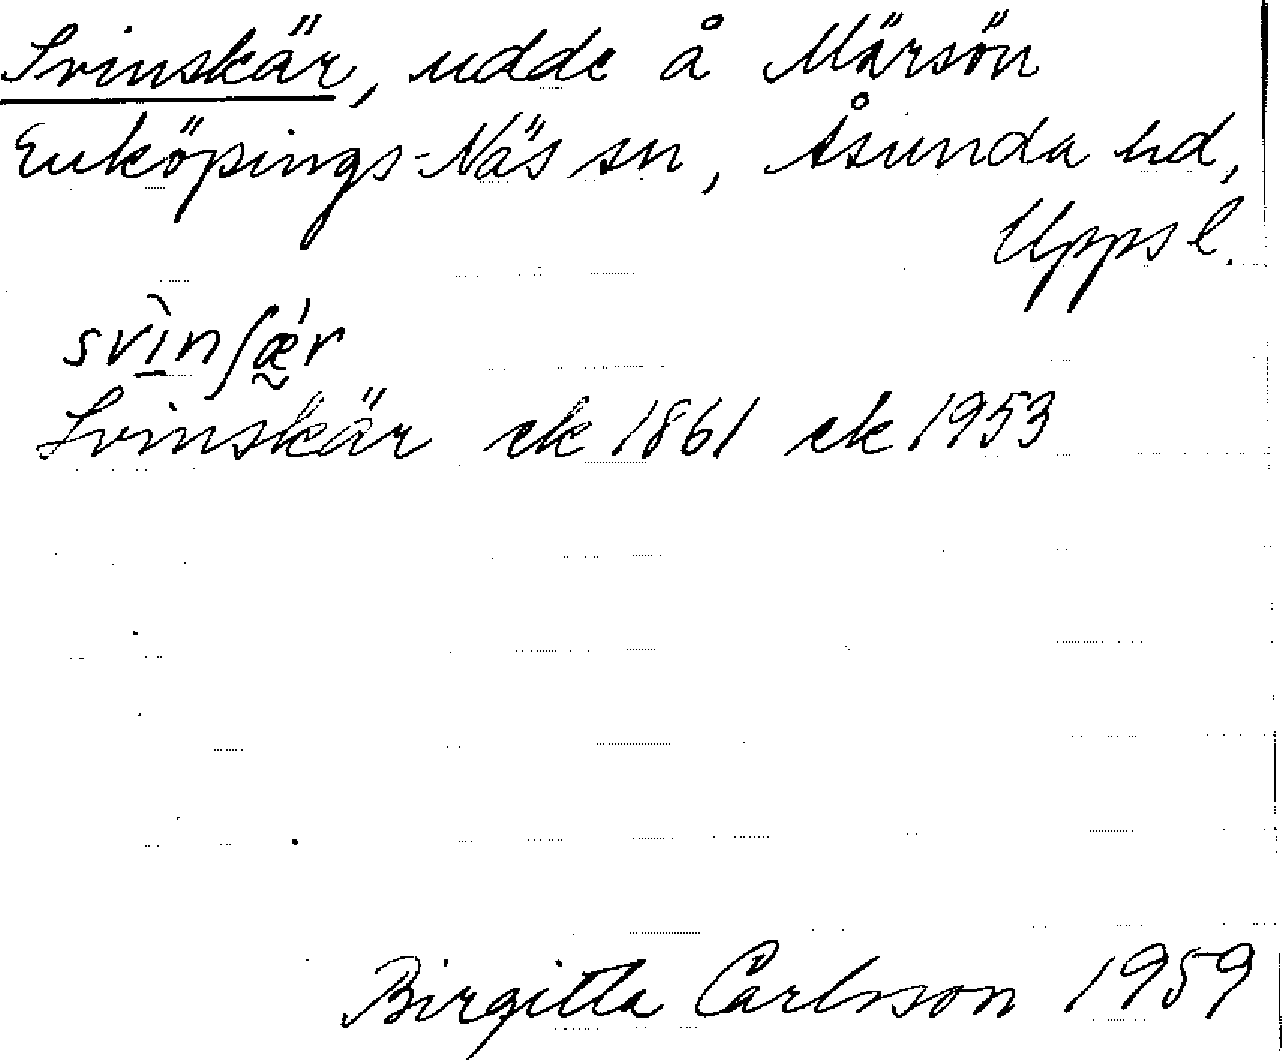 Svinskär, udde å Märsön
Enköpings-Näs sn, Åsunda hd,
Upps l.
svìnʃǽ̰r
Svinskär ek 1861 ek 1953
Birgitta Carlsson 1959